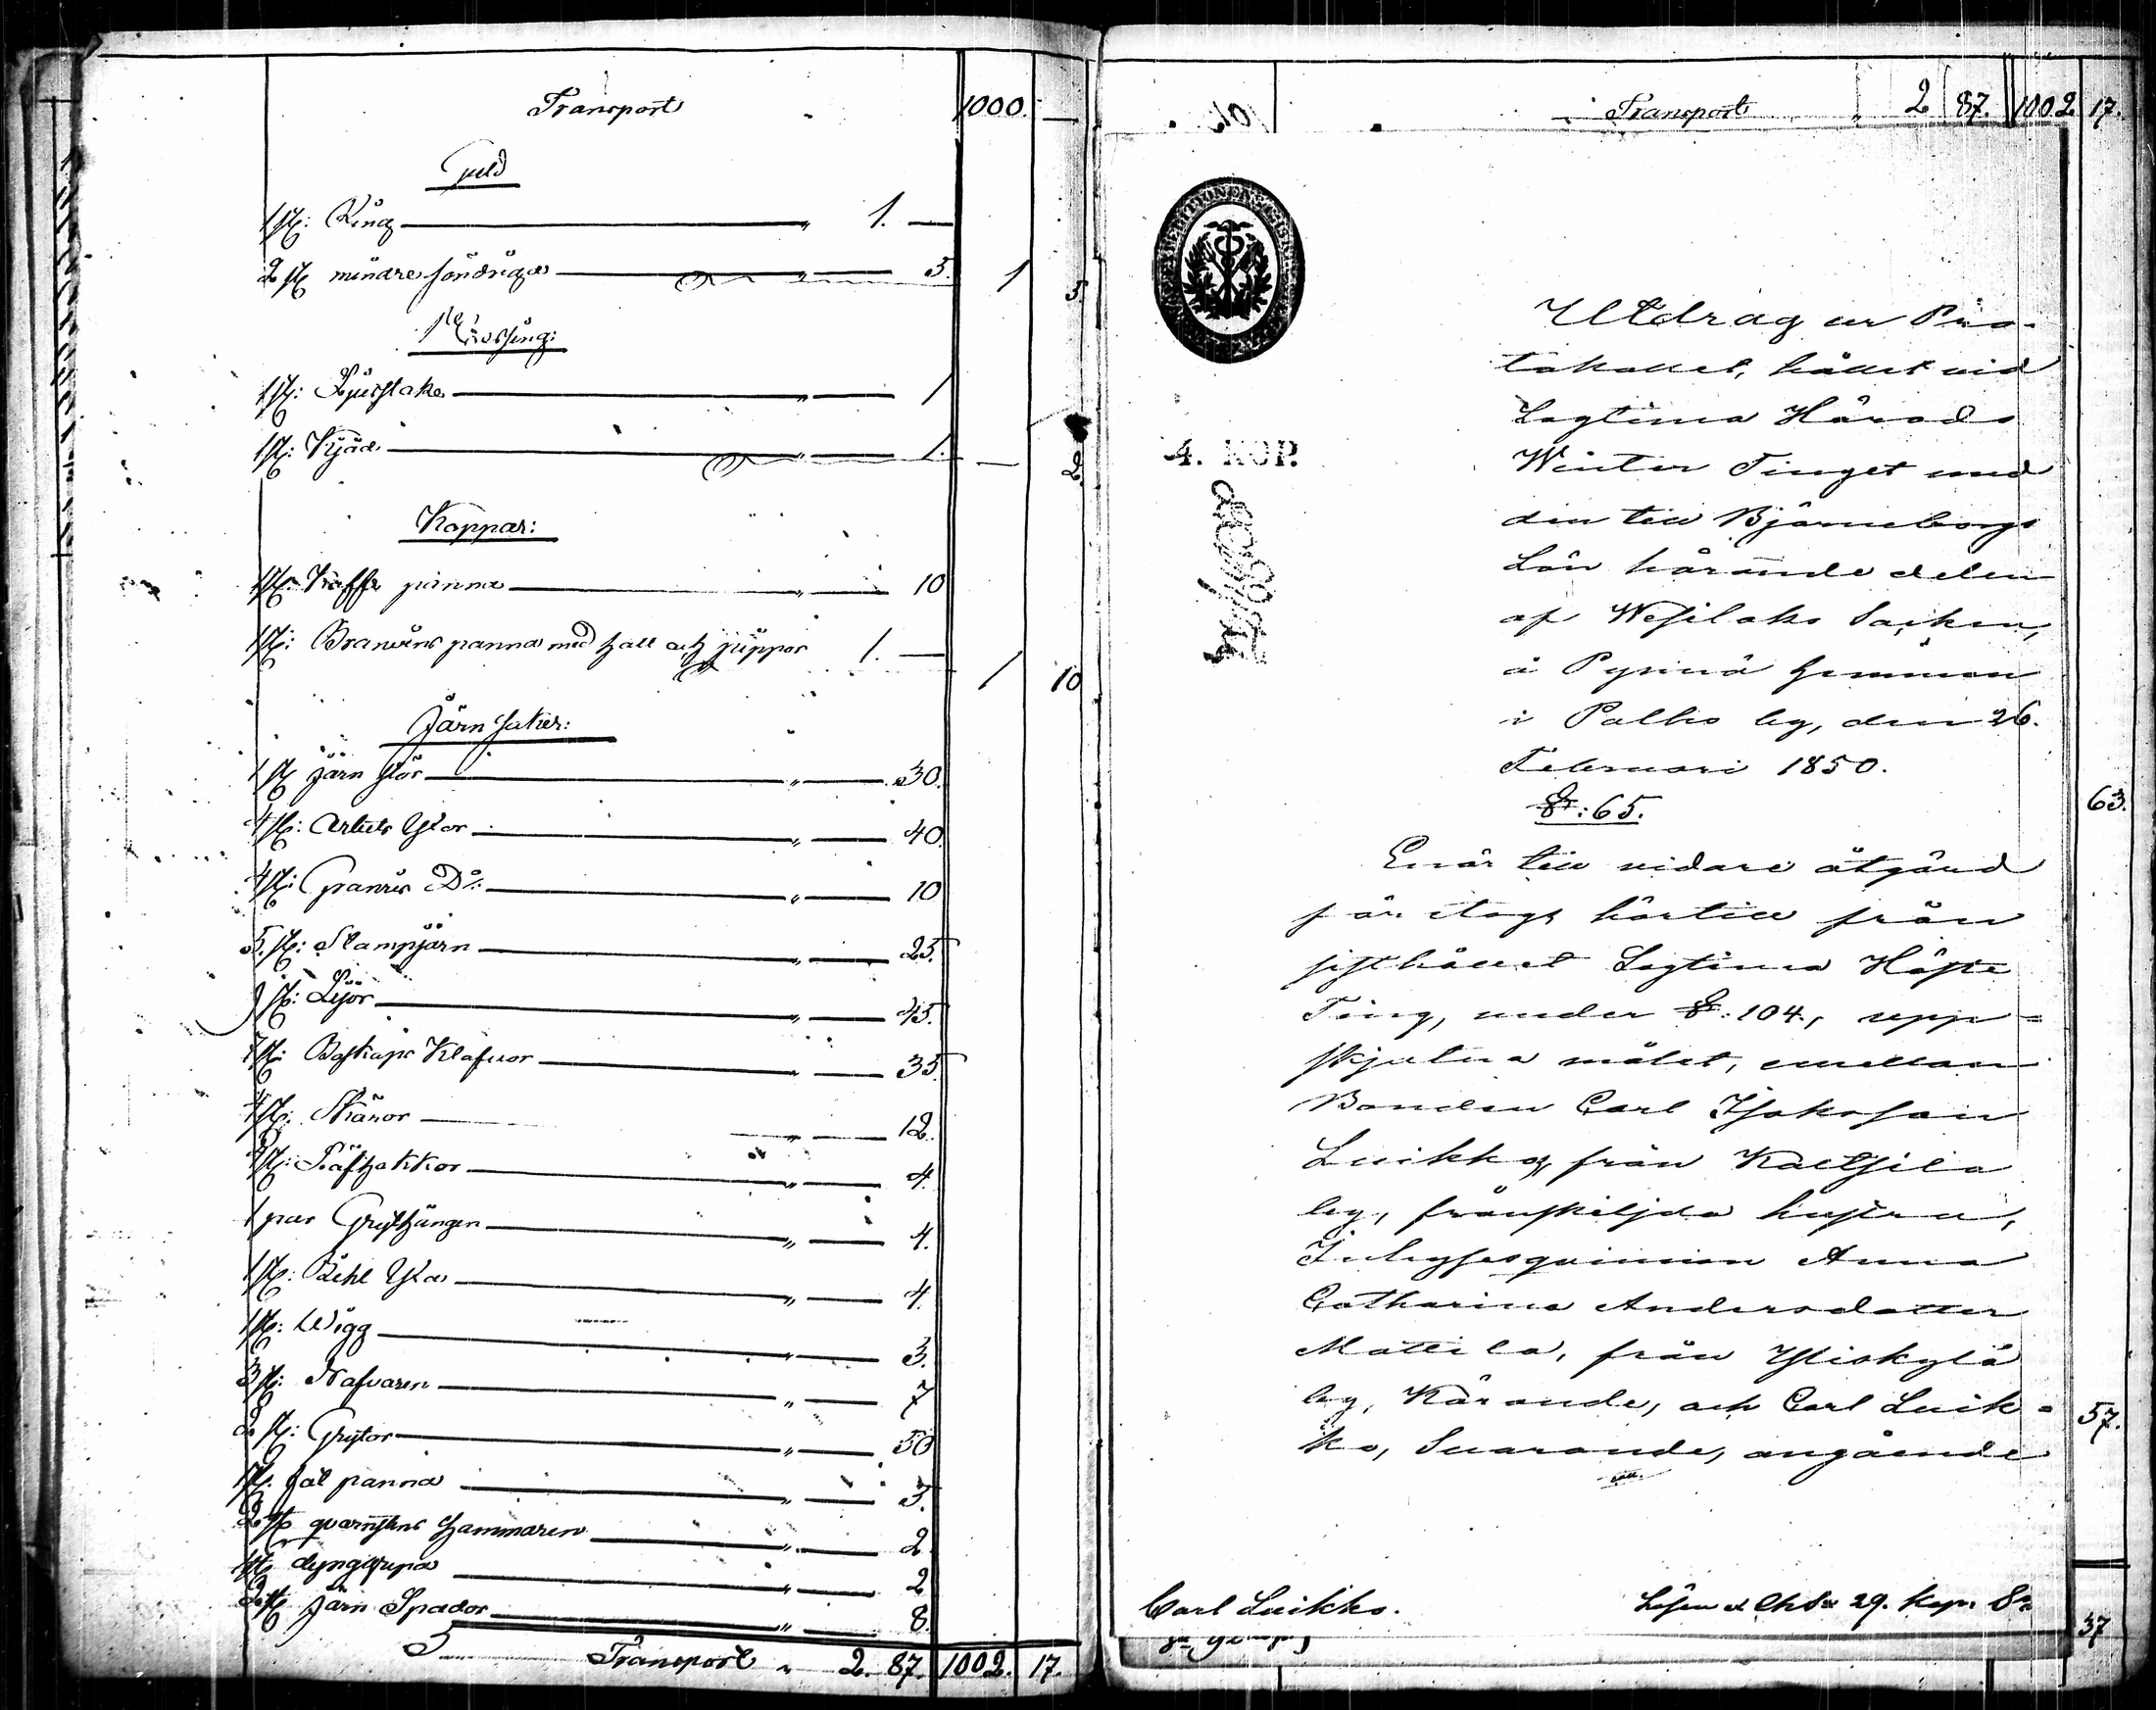 Transport 1000. —
Guld
1 st: Ring — " 1. —
2 st mindre söndriga — " — 5. 1 5.
Mässing:
1 st: Ljusstake — " — 1
1 st: Kjäd — " — 1. — 2.
Koppar:
1 st: Kaffe panna — " — 10
1 st: Branvins panna med hatt och pippor 1. — 1 10
Järn saker:
1 st järn stör — " — 30.
4 st: Arbets Yxor — " — 40.
4 st: Granris Do: — " — 10
5. st: Stampjärn — " — 25.
9 st: Lijor — " — 45.
7 st: Boskaps Klafvor — " — 35.
4 st: Skäror — " — 12.
2 st: Täljhakkor — " — 4.
1 par Grythängen — " — 4.
1 st: Bihl Yxa — " — 4.
1 st: Wigg — " — 3.
3 st: Nafvaren — " — 7
2 st: Grytor — " — 50
1 st. jät panna — " — 3.
2 st qvarnstens hammaren — " — 2
1 st dynggrepa — " — 2
2 st järn Spador — " — 8.
Transport " 2. 87. 1002. 17.
Transport " 2 87. 1002 17.
4. KOP.
Utdrag ur Pro-
tokollet, hållet vid
Lagtima Härads
Winter Tinget med
den till Björneborgs
Län hörande delen
af Wesilaks Socken,
å Pyrinä hemman
i Palho by, den 26.
Februari 1850.
§: 65.
63.
Enär till vidare åtgärd
företogs härtill från
sisthållet Lagtima Höste
Ting, under §: 104, upp=
skjutna målet, emellan
Bonden Carl Isaksson
Luikko, från Kaltsila
by, frånskiljda hustru,
Inhysesqvinnan Anna
Catharina Andersdotter
Mattila, från Yliskylä
by, Kärande, och Carl Luik=
57.
ko, Svarande, angående
Carl Luikko. Lösen 29. kop. Sr
37